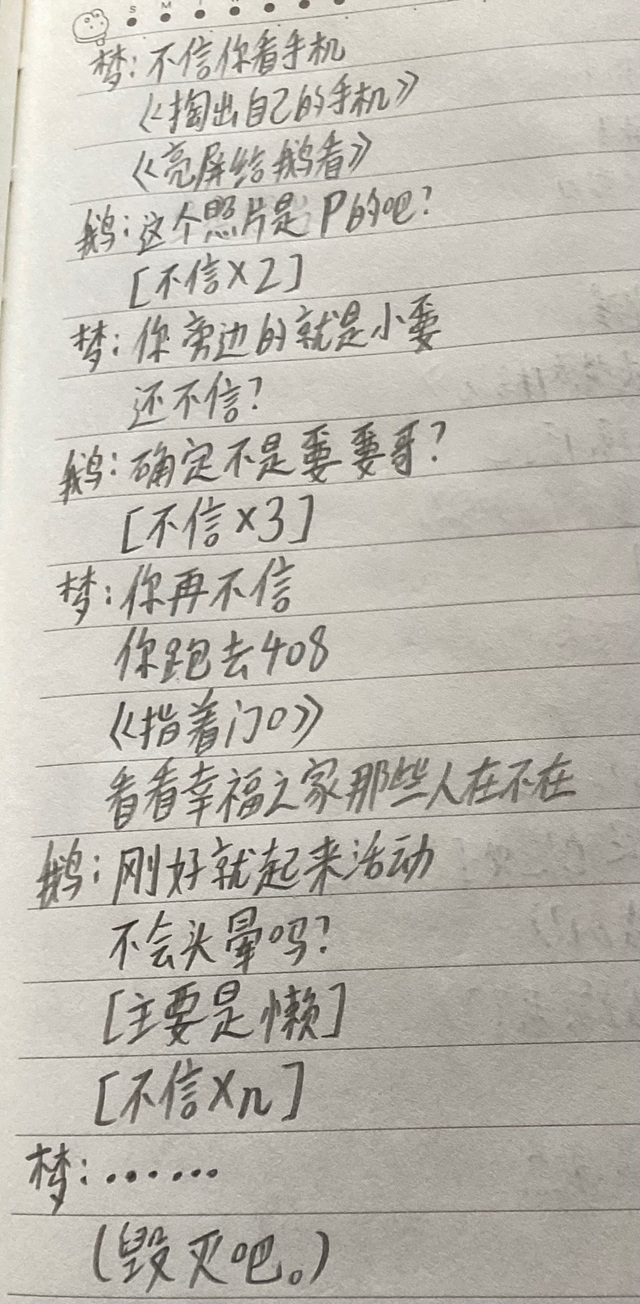 S M T
梦：不信你看手机
《掏出自己的手机》
《亮屏给鹅看》
鹅：这个照片是P的吧？
[不信×2]
梦：你旁边的就是小要
还不信？
鹅：确定不是要要哥？
[不信×3]
梦：你再不信
你跑去408
《指着门口》
看看幸福之家那些人在不在
鹅：刚好就起来活动
不会头晕吗？
[主要是懒]
[不信×n]
梦：……
（毁灭吧。）